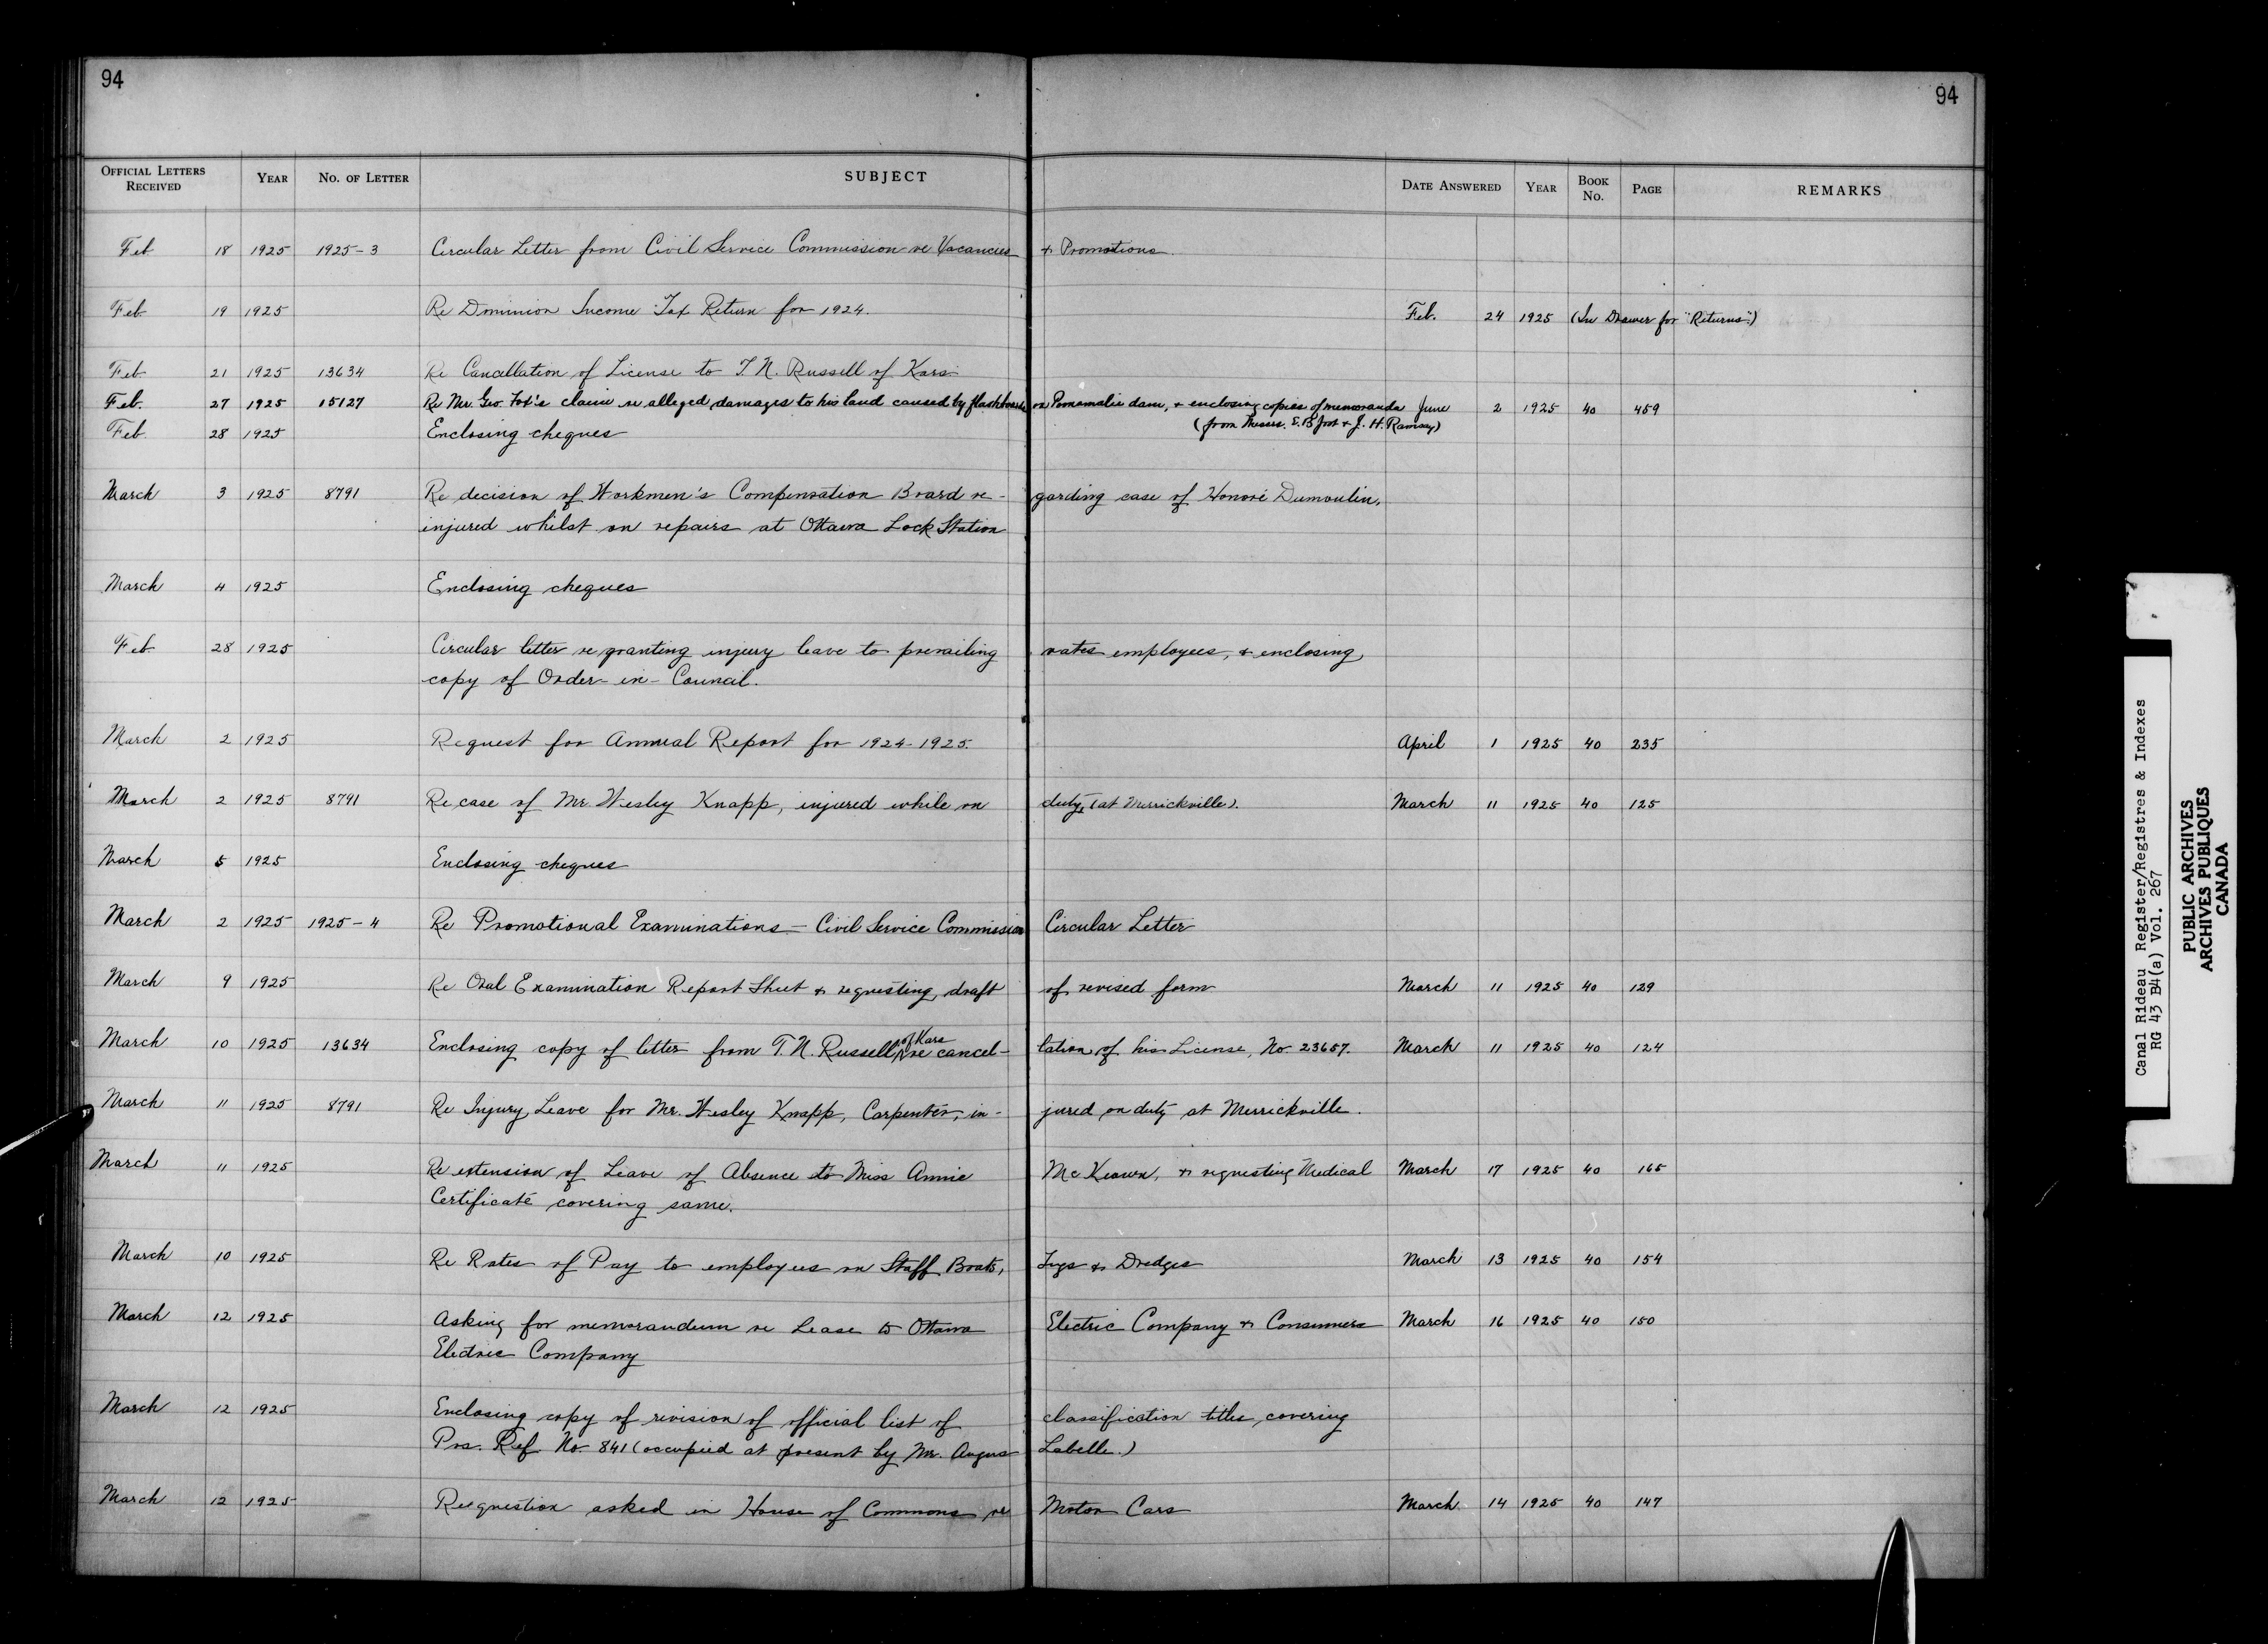 94
94
OFFICIAL LETTERS RECEIVED YEAR NO. OF LETTER SUBJECT DATE ANSWERED YEAR BOOK No. PAGE REMARKS
Feb 18 1925 1925-3 Circular Letter from Civil Service Commission re Vacancies & Promotions.
Feb 19 1925 Re Dominion Income Tax Return for 1924. Feb. 24 1925 (In Drawer for "Returns".)
Feb 21 1925 13634 Re Cancellation of License to T. N. Russell of Kars
Feb. 27 1925 15127 Re Mr. Geo. Fox's claim re alleged damages to his land caused by flashboards on Poonamalie dam, & enclosing copies of memoranda June 2 1925 40 459
(from Messrs. & J. H. Ramsay)
Feb. 28 1925 Enclosing cheques
March 3 1925 8791 Re decision of Workmen's Compensation Board re-garding case of Honoré Dumoulin,
injured whilst on repairs at Ottawa Lock Station
March 4 1925 Enclosing cheques
Feb 28 1925 Circular letter re granting injury leave to prevailing rates employees, & enclosing
copy of Order-in-Council.
March 2 1925 Request for Annual Report for 1924-1925. April 1 1925 40 235
March 2 1925 8791 Re case of Mr. Wesley Knapp, injured while on duty, (at Merrickville). March 11 1925 40 125
March 5 1925 Enclosing cheques
March 2 1925 1925-4 Re Promotional Examinations - Civil Service Commission Circular Letter
March 9 1925 Re Oral Examination Report Sheet & requesting draft of revised form March 11 1925 40 129
March 10 1925 13634 Enclosing copy of letter from T. N. Russell of Kars re cancel-lation of his License, No. 23657. March 11 1925 40 124
March 11 1925 8791 Re Injury Leave for Mr. Wesley Knapp, Carpenter, in-jured on duty at Merrickville.
March 11 1925 Re extension of Leave of Absence to Miss Annie McKeown, & requesting Medical March 17 1925 40 165
Certificate covering same.
March 10 1925 Re Rates of Pay to employees on Staff Boats, Tugs & Dredges March 13 1925 40 154
March 12 1925 Asking for memorandum re Lease to Ottawa Electric Company & Consumers March 16 1925 40 150
Electric Company
March 12 1925 Enclosing copy of revision of official list of classification titles, covering
Pos. Ref. No. 841 (occupied at present by Mr. Angus Labelle.)
March 12 1925 Re question asked in House of Commons re Motor Cars March 14 1925 40 147
Canal Rideau Register/Registres & Indexes
RG 43 B4(a) Vol. 267
PUBLIC ARCHIVES
ARCHIVES PUBLIQUES
CANADA